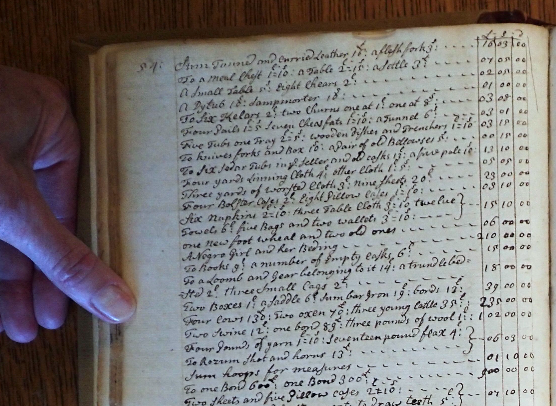 54: Sum Tunned and Curried Leather 10£: a flesh fork 3£ 10 03 00
To a meal Chest 1=10: a Table 2=15: a settle 3£ 07 05 00
A Small Table 5£: Eight Chears 2£ 07 00 00
A Pytub 18£: Sampmorter 18£ 01 00
To Six Melars 2£: two Churns one at 1£: one at 8£ 03 08 00
Four Pails 1=5: Seven Cheasfats 1=10: a Tunnel 6£ 03 01 00
Five Tubs one Tray 2=5: wooden dishes and Trenchers 1=10 03 15 00
To knives forks and Box 16: a pair of old Bellowses 5£ 00 00
To six Sedar Tubs in ye Seller and old casks 13: 13 00
Four yards Linning Cloth 4: other Cloth 1:5£ 05 05 00
Three yards of worsted Cloth 3: nine sheets 20£ 23 00 00
Four Bolster Cases 2£: Eight Pillow Cases 1=10: 03 10 00
Six Napkins 2=10: three Table Cloth 3=10 twelve }
Towels 6£: five Bags and two wallets 3=10: } 15 10 00
one new foot wheal and two old ones 06 00 00
A Negro Girl and her Beding 210 00 00
To Books 9£: a number of Empty casks 6£ 15 00 00
To a Loomb and Gear belonging to it 14: a trundlebed=
Std 2£: three Small Cags 2£ 18 00 00
Two Boxes 1£: a Saddle 6£: sum bar Iron 19: bords 13£ 39 00 00
Four Cows 130: Two oxen 70£: three young Cattle 35£ 235 00 00
Two Swine 12: one bond 89£: three pounds of wool 1=1 102 00 00
Four Pounds of yarn 1=10: Seventeen pound flax 4: } 06 03 00
To Rozum Shot and horns 13£
Sum hoops for measures 01 10 00
To one Bond 600£: one Bond 300£ 900 00 00
Two Sheets and five Pillow cases 2=10: 07 10
to draw teeth 5: